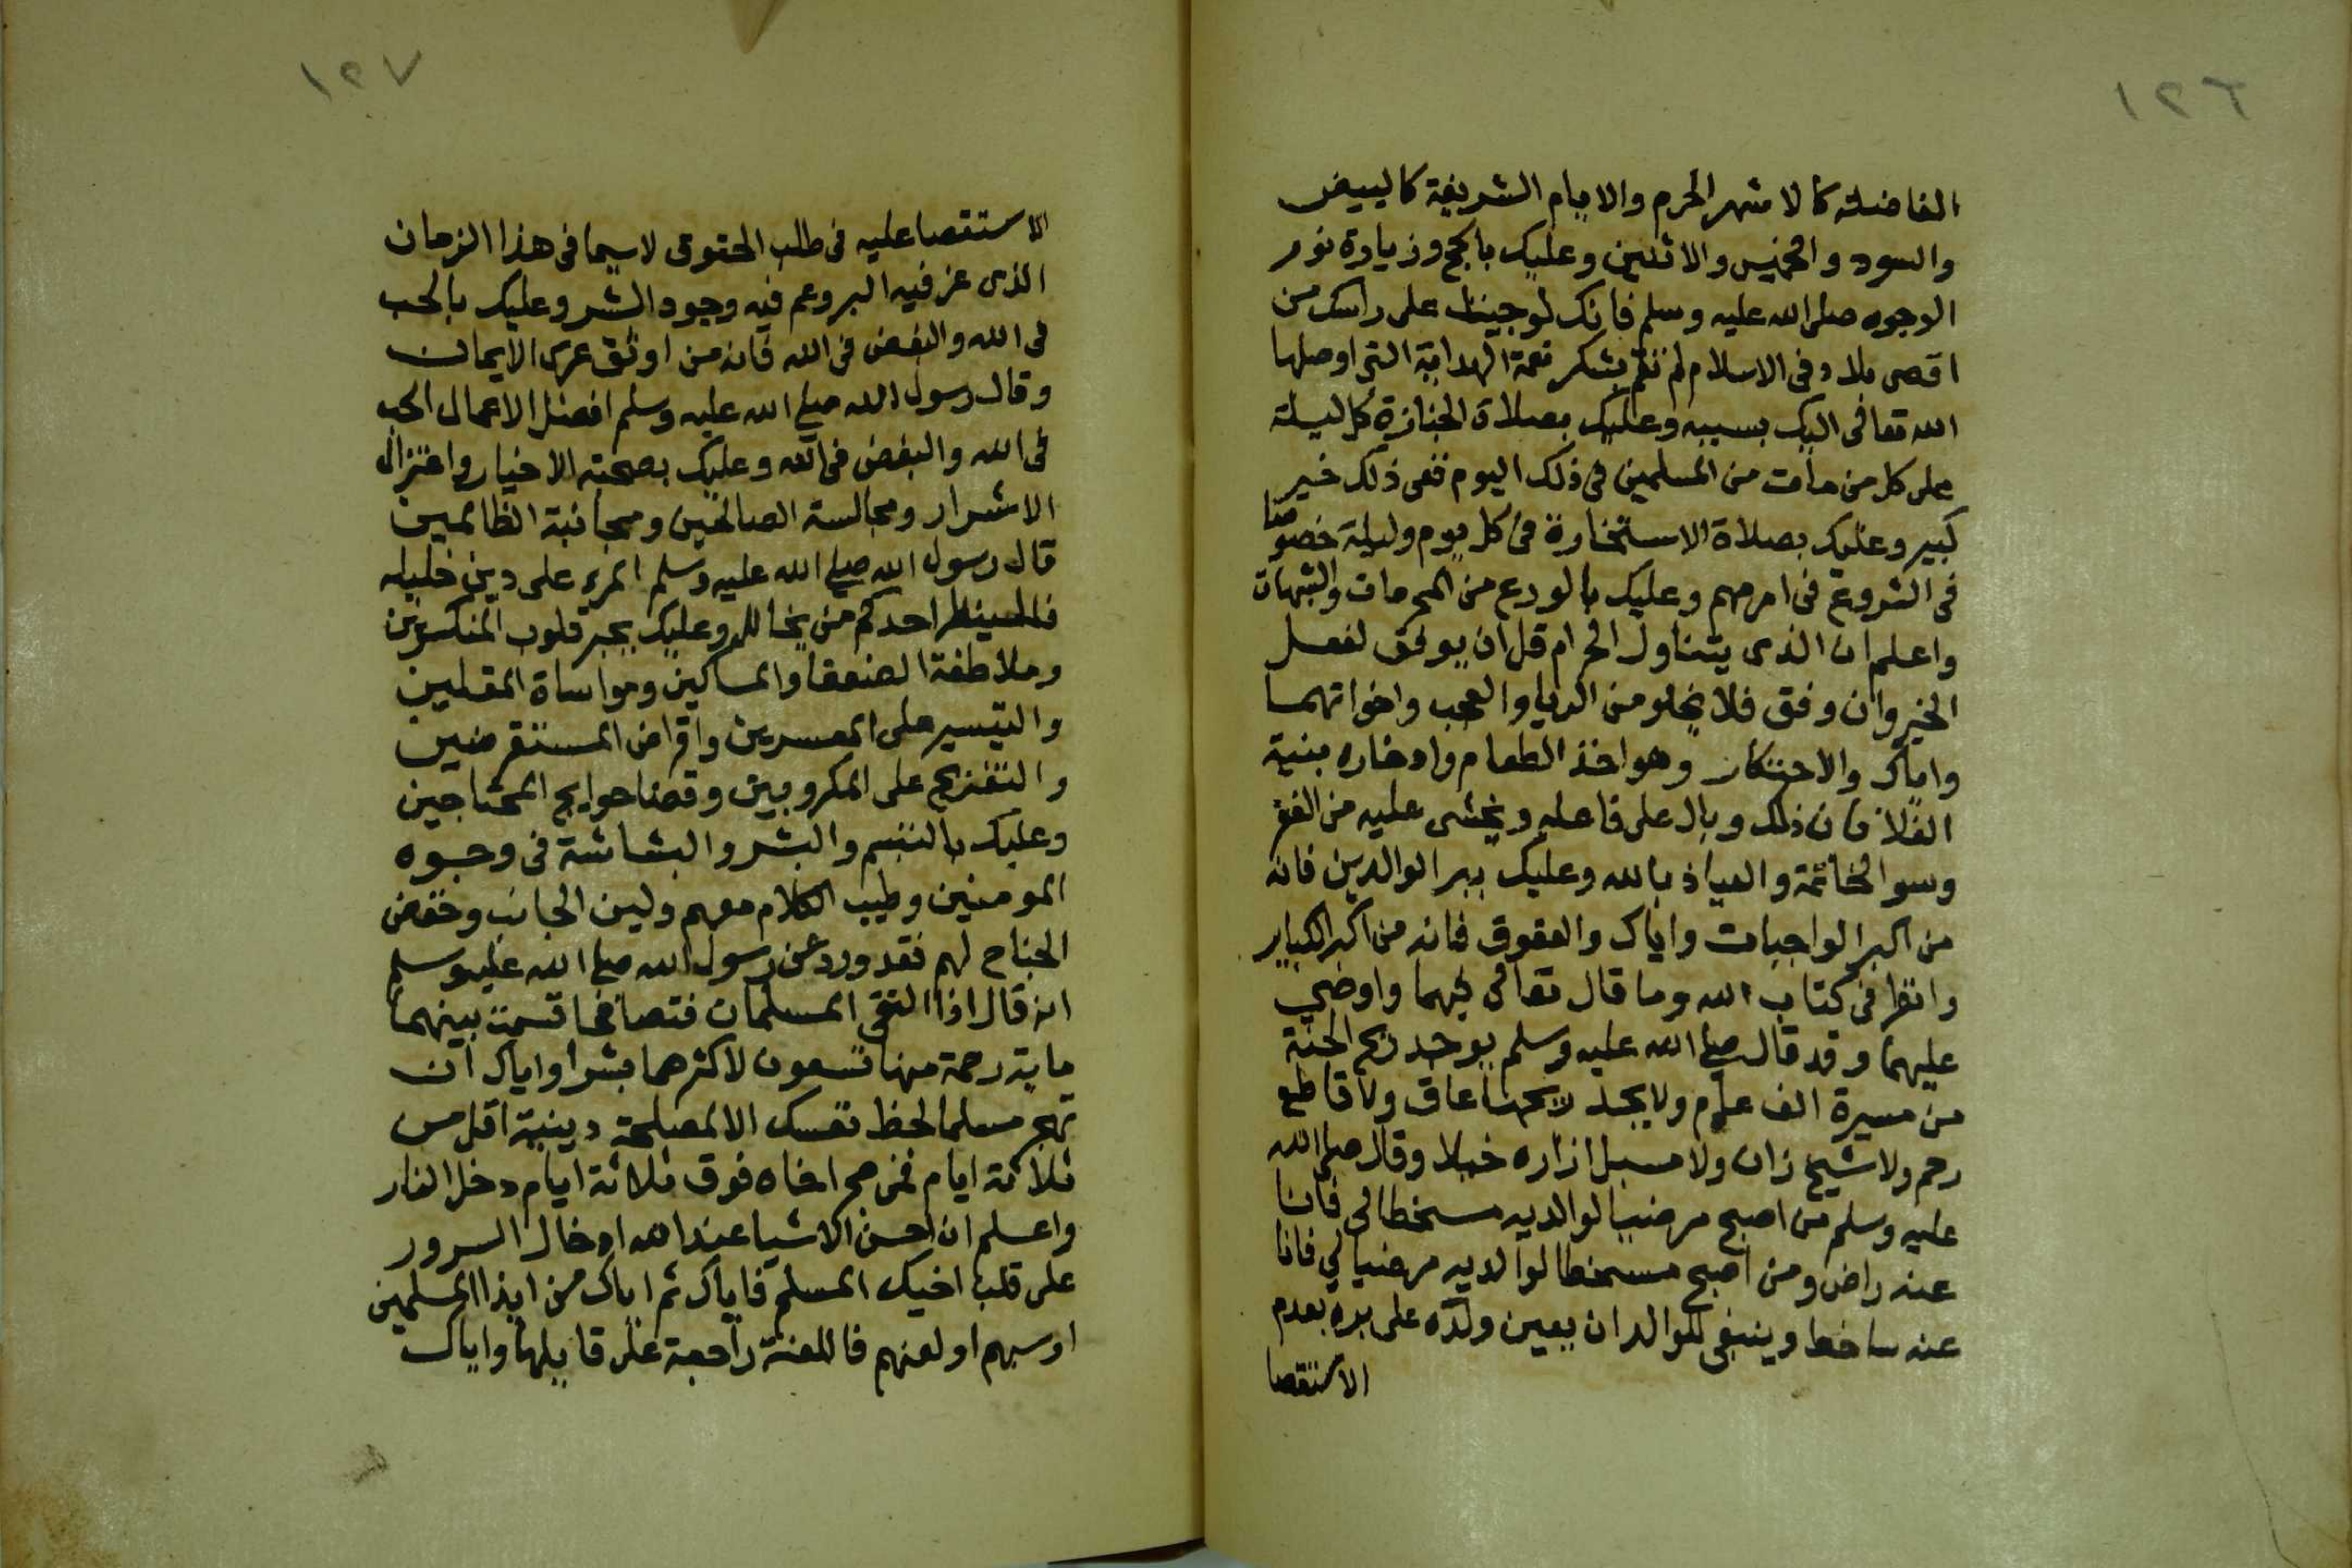 ١٢٦
الفاضلة كالاشهر الحرم والايام الشريفة كالبيض
والسود والخميس والاثنين وعليك بالحج وزيارة نور
الوجوه صلى الله عليه وسلم فانك لو جيت على راسك من
اقصى بلاد في الاسلام لم تقم بشكر نعمة الهداية التي اوصلها
الله تعالى اليك بسببه وعليك بصلاة الجنازة كل ليلة
على كل من مات من المسلمين في ذلك اليوم ففى ذلك خير
كبير وعليك بصلاة الاستخارة في كل يوم وليلة خصوصا
فى الشروع فى امر مهم وعليك بالورع من المحرمات والشبهات
واعلم ان الذى يتناول الحرام قل ان يوفق لفعل
الخير وان وفق فلا يخلو من الريا والعجب واخواتهما
واياك والاحتكار وهو اخذ الطعام وادخاره بنية
الغلا فان ذلك وبال على فاعله ويخشى عليه من الفقر
وسو الخاتمة والعياذ بالله وعليك ببر الوالدين فانه
من اكبر الواجبات واياك والعقوق فانه من اكبر الكباير
وانظر فى كتاب الله وما قال تعالى فيهما واوصى
عليهما وقد قال صلى الله عليه وسلم يوجد ريح الجنة
من مسيرة الف عام ولا يجد ريحها عاق ولا قاطع
رحم ولا شيخ زان ولا مسبل ازاره خيلا وقال صلى الله
عليه وسلم من اصبح مرضيا لوالديه مسخطا لى فانا
عنه راض ومن اصبح مسخطا لوالديه مرضيا لي فانا
عنه ساخط وينبغى للوالد ان يعين ولده على بره بعدم
الاستقصا
١٢٧
الاستقصا عليه فى طلب الحقوق لاسيما فى هذا الزمان
الذى عز فيه البر وعم فيه وجود الشر وعليك بالحب
فى الله والبغض فى الله فانه من اوثق عرى الايمان
وقال رسول الله صلى الله عليه وسلم افضل الاعمال الحب
فى الله والبغض فى الله وعليك بصحبة الاخيار واعتزال
الاشرار ومجالسة الصالحين ومجانبة الظالمين
قال رسول الله صلى الله عليه وسلم المرء على دين خليله
فلينظر احدكم من يخالل وعليك بجبر قلوب المنكسرين
وملاطفة الضعفا والمساكين ومواساة المقلين
والتيسير على المعسرين واقراض المستقرضين
والتفريج على المكروبين وقضا حوايج المحتاجين
وعليك بالتبسم والبشر والبشاشة فى وجوه
المومنين وطيب الكلام معهم ولين الجانب وخفض
الجناح لهم فقد ورد عن رسول الله صلى الله عليه وسلم
انه قال اذا التقى المسلمان فتصافحا قسمت بينهما
ماية رحمة منها تسعون لاكثرهما بشرا واياك ان
تهجر مسلما لحظ نفسك الا لمصلحة دينية اقل من
ثلاثة ايام فمن هجر اخاه فوق ثلاثة ايام دخل النار
واعلم ان احسن الاشيا عند الله ادخال السرور
على قلب اخيك المسلم فاياك ثم اياك من ايذا المسلمين
اوسبهم او لعنهم فاللعنة راجعة على قايلها واياك